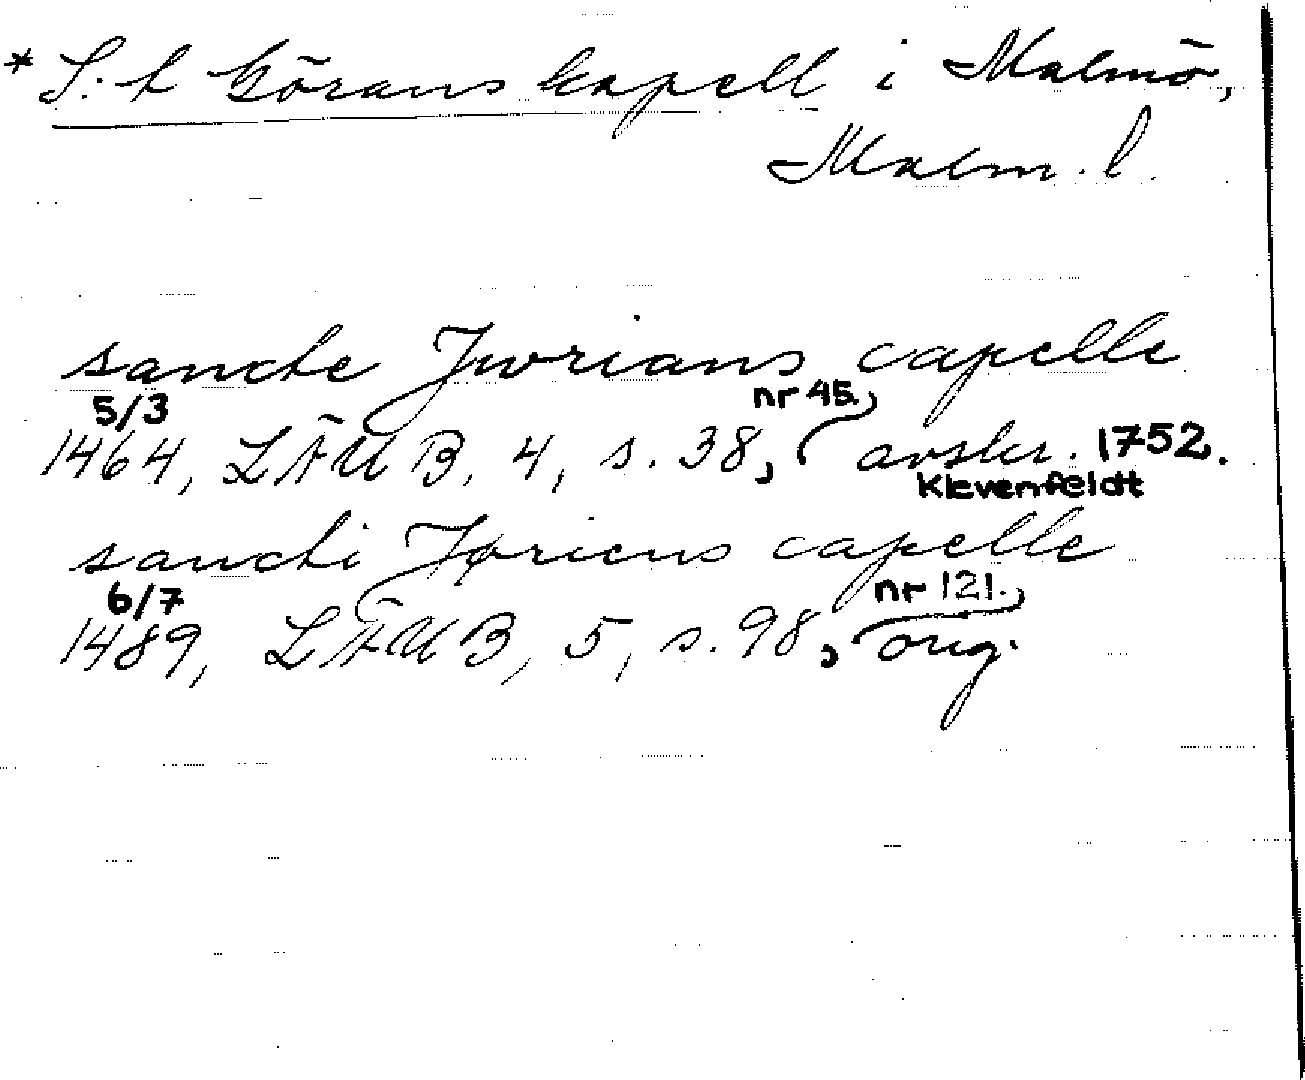 * S:t Görans kapell i Malmö,
Malm. l.
sancte Jwrians capelle
5/3 nr 45.,
1464, LÄUB, 4, s. 38, avskr. 1752.
Klevenfeldt
sancti Jøriens capelle
6/7 nr 121.,
1489, LÄUB, 5, s. 98, orig.